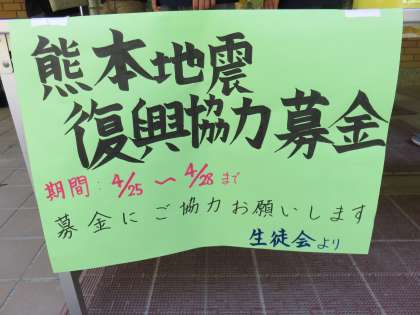 熊本地震
復興協力募金
期間：4/25 〜 4/28 まで
募金にご協力お願いします
生徒会より